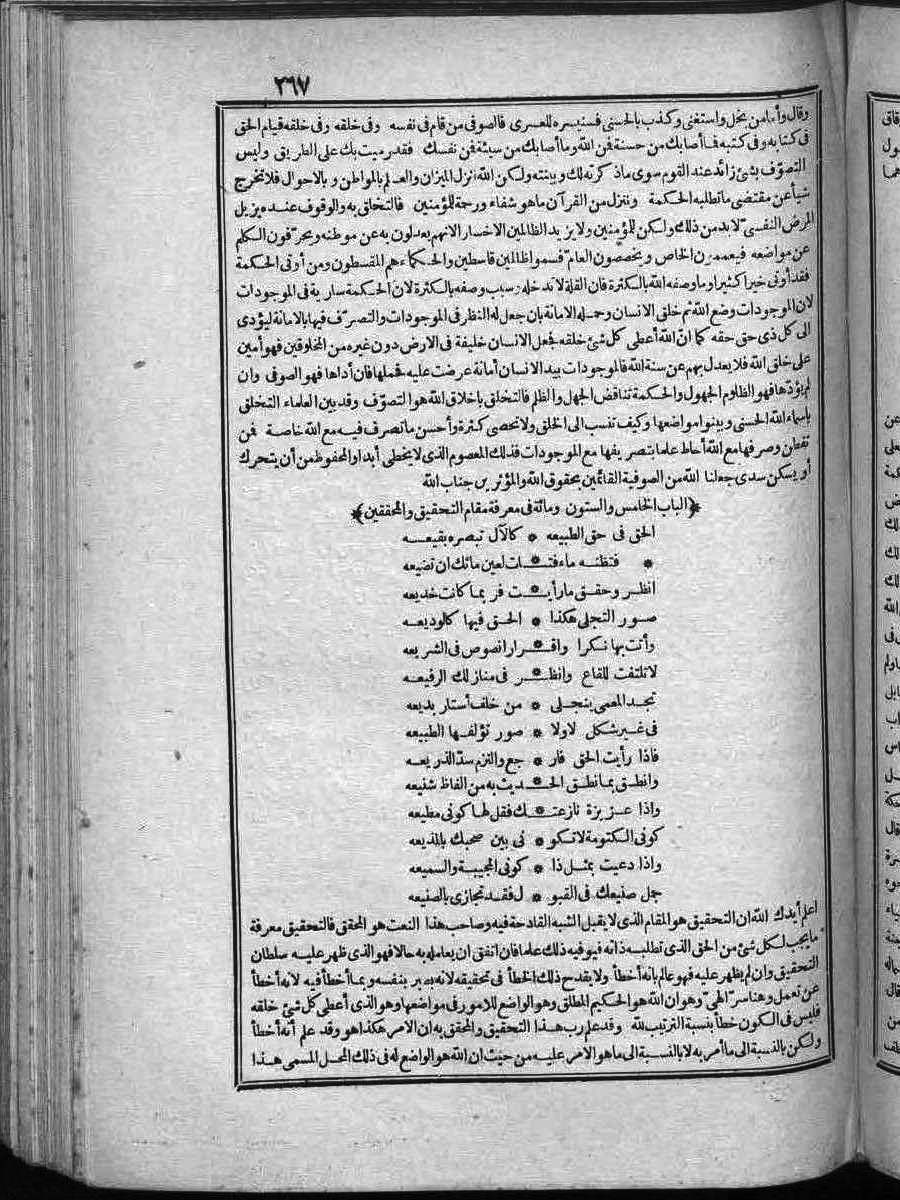 ٣٦٧
وقال وأما من بخل واستغنى وكذب بالحسنى فسنيسره للعسرى فالصوفى من قام فى نفسه وفى خلقه وفى خلقه قيام الحق
فى كتابه وفى كتبه فما أصابك من حسنة فمن الله وما أصابك من سيئة فمن نفسك فقد رميت بك على الطريق وليس
التصوّف بشئ زائد عند القوم سوى ماذ كرته لك وبينته ولكن الله نزل الميزان والعلم بالمواطن وبالاحوال فلا تخرج
شيأ عن مقتضى ما تطلبه الحكمة وننزل من القرآن ما هو شفاء ورحمة للمؤمنين فالتخلق به والوقوف عنده يزيل
المرض النفسىّ لابد من ذلك ولكن للمؤمنين ولا يزيد الظالمين الاخسارا لانهم يعدلون به عن موطنه ويحرّفون الكلم
عن مواضعه فيعممون الخاص ويخصصون العام فسموا ظالمين قاسطين والحكماء هم المقسطون ومن أوتى الحكمة
فقد أوتى خيرا كثيرا وما وصفه الله بالكثرة فان القلة لا تدخله وسبب وصفه بالكثرة لان الحكمة سارية فى الموجودات
لان الموجودات وضع الله ثم خلق الانسان وحمله الامانة بان جعل له النظر فى الموجودات والتصرّف فيها بالامانة ليؤدى
الى كل ذى حق حقه كما ان الله أعطى كل شئ خلقه فجعل الانسان خليفة فى الارض دون غيره من المخلوقين فهو أمين
على خلق الله فلا يعدل بهم عن سنة الله فالموجودات بيد الانسان أمانة عرضت عليه فحملها فان أداها فهو الصوفى وان
لم يؤدّها فهو الظلوم الجهول والحكمة تناقض الجهل والظلم فالتخلق باخلاق الله هو التصوّف وقد بين العلماء التخلق
بأسماء الله الحسنى وبينوا مواضعها وكيف تنسب الى الخلق ولا تحصى كثرة وأحسن ما تصرف فيه مع الله خاصة فمن
تفطن وصرفها مع الله أحاط علما بتصريفها مع الموجودات فذلك المعصوم الذى لا يخطى أبدا والمحفوظ من أن يتحرك
أو يسكن سدى جعلنا الله من الصوفية القائمين بحقوق الله والمؤثرين جناب الله
﴿الباب الخامس والستون ومائة فى معرفة مقام التحقيق والمحققين﴾
الحق فى حق الطبيعه * كالآل تبصره بقيعه
* فتظنه ماء فتـات لعين مائك ان تضيعه
انظر وحقق ما رأيت فربما كانت خديعه
صور التجلى هكذا * الحق فيها كالوديعه
وأتت بها نكرا واقرارا نصوص فى الشريعه
لا تلتفت للقاع وانظر فى منازلك الرفيعه
تجد المعمى ينجلى * من خلف أستار بديعه
فى غير شكل لا ولا * صور تؤلفها الطبيعه
فاذا رأيت الحق فار * جع والتزم سدّ الذريعه
وانطق بما نطق الحديث به من الفاظ شنيعه
واذا عزيزة نازعتك فقل لها كونى مطيعه
كونى الكتومة لا تكو * نى بين صحبك بالمذيعه
واذا دعيت بمثل ذا * كونى المجيبة والسميعه
جمل صنيعك فى القبو * ل فقد تجازى بالصنيعه
اعلم أيدك الله ان التحقيق هو المقام الذى لا يقبل الشبه القادحة فيه وصاحب هذا النعت هو المحقق فالتحقيق معرفة
ما يجب لكل شئ من الحق الذى تطلبه ذاته فيوفيه ذلك علما فان اتفق ان يعامله به حالا فهو الذى ظهر عليه سلطان
التحقيق وان لم يظهر عليه فهو عالم بانه أخطأ ولا يقدح ذلك الخطأ فى تحقيقه لانه بصير بنفسه وبما أخطأ فيه لانه أخطأ
عن تعمل وهنا سرّ الهىّ وهو ان الله هو الحكيم المطلق وهو الواضع للامور فى مواضعها وهو الذى أعطى كل شئ خلقه
فليس فى الكون خطأ بنسبة الترتيب لله وقد علم رب هذا التحقيق والمحقق به ان الامر هكذا هو وقد علم أنه أخطأ
ولكن بالنسبة الى ما أمر به لا بالنسبة الى ما هو الامر عليه من حيث ان الله هو الواضع له فى ذلك المحل المسمى هذا